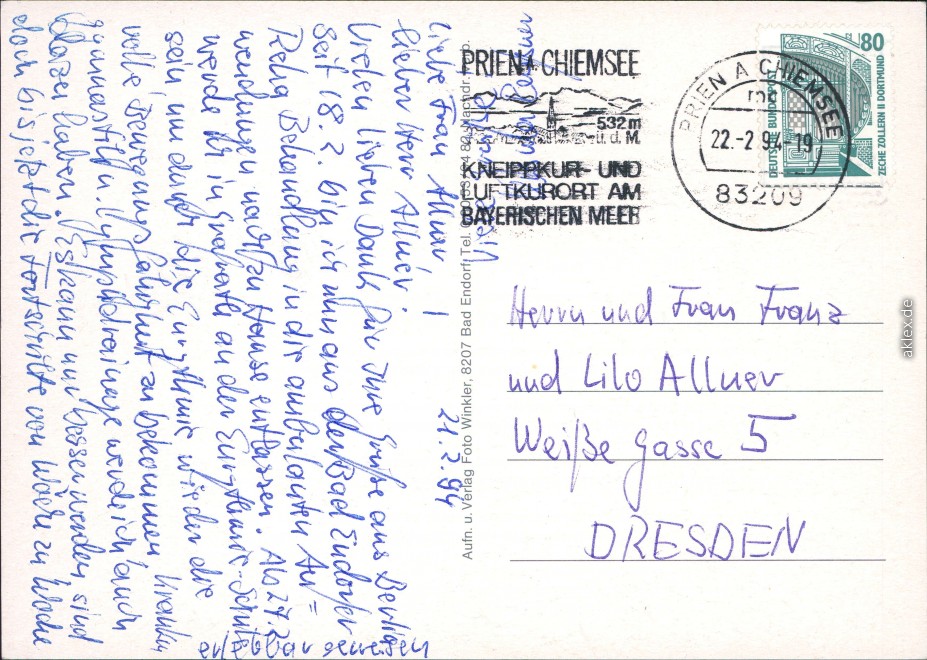 21.2.94
Liebe Frau Allner!
lieber Herr Allner!
Vielen lieben Dank für Ihre Grüße aus
Seit 18.2. bin ich nun aus der Bad Endorfer
Reha Behandlung in die ambulanten An=
wendungen nach zu Hause entlassen. Ab 27.2.
werde ich in an der Eurythmie-Schule
sein, um durch die Eurythmie wieder die
volle Bewegungsfähigkeit zu bekommen. Kranken
gymnastik u. Lymphdrainage werde ich auch
haben. Es kann nur besser werden, sind
doch bis jetzt die Fortschritte von Woche zu Woche
erlebbar gewesen
PRIEN A. CHIEMSEE
532 m
ü. d. M.
KNEIPPKUR- UND
LUFTKURORT AM
BAYERISCHEN MEER
PRIEN A CHIEMSEE
22.-2.94-19
83209
80
DEUTSCHE BUNDESPOST
ZECHE ZOLLERN II DORTMUND
Aufn. u. Verlag Foto Winkler, 8207 Bad Endorf, Tel.
Herrn und Frau Franz
und Lilo Allner
Weiße Gasse 5
DRESDEN
aklex.de